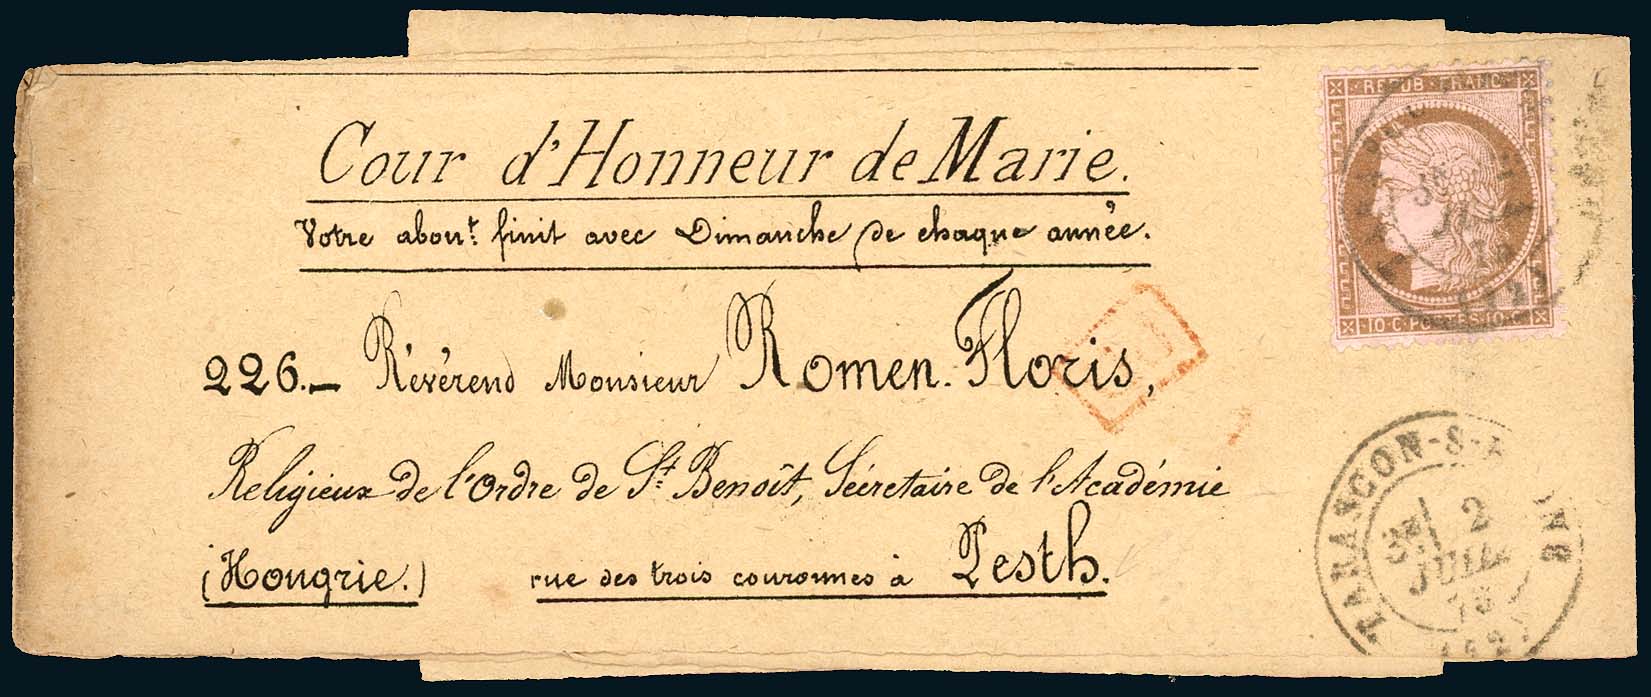 Cour d'Honneur de Marie.
Votre abonᵗ. finit avec Dimanche de chaque année.
226.— Révérend Monsieur Romen. Floris,
Religieux de l'Ordre de Sᵗ. Benoît, Sécretaire de l'Académie
(Hongrie.) rue des trois couronnes à Pesth.
REPUB · FRANC
10 · C · POSTES · 10 · C
TARASCON-S-
3ᴱ/ 2
JUIL